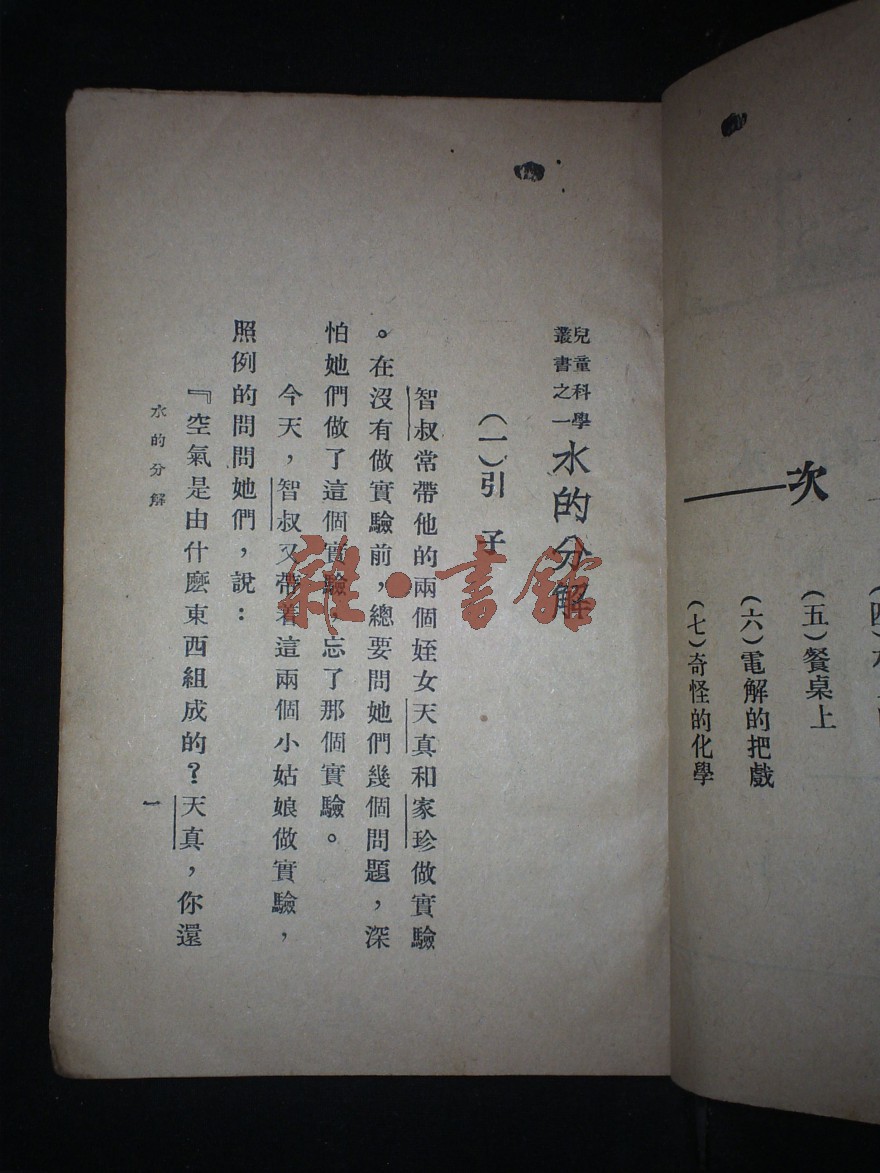 次
(五)餐桌上
(六)電解的把戲
(七)奇怪的化學
兒童科學
叢書之一
水的分解
(一)引子
智叔常帶他的兩個姪女天真和家珍做實驗
。在沒有做實驗前，總要問她們幾個問題，深
怕她們做了這個實驗，忘了那個實驗。
今天，智叔又帶着這兩個小姑娘做實驗，
照例的問問她們，說：
『空氣是由什麽東西組成的？天真，你還
水的分解
一
雜·書館